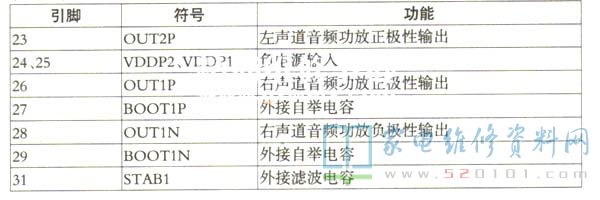 引脚 符号 功能
23 OUT2P 左声道音频功放正极性输出
24、25 VDDP2、VDDP1 负电源输入
26 OUT1P 右声道音频功放正极性输出
27 BOOT1P 外接自举电容
28 OUT1N 右声道音频功放负极性输出
29 BOOT1N 外接自举电容
31 STAB1 外接滤波电容
家电维修资料网
www.520101.com